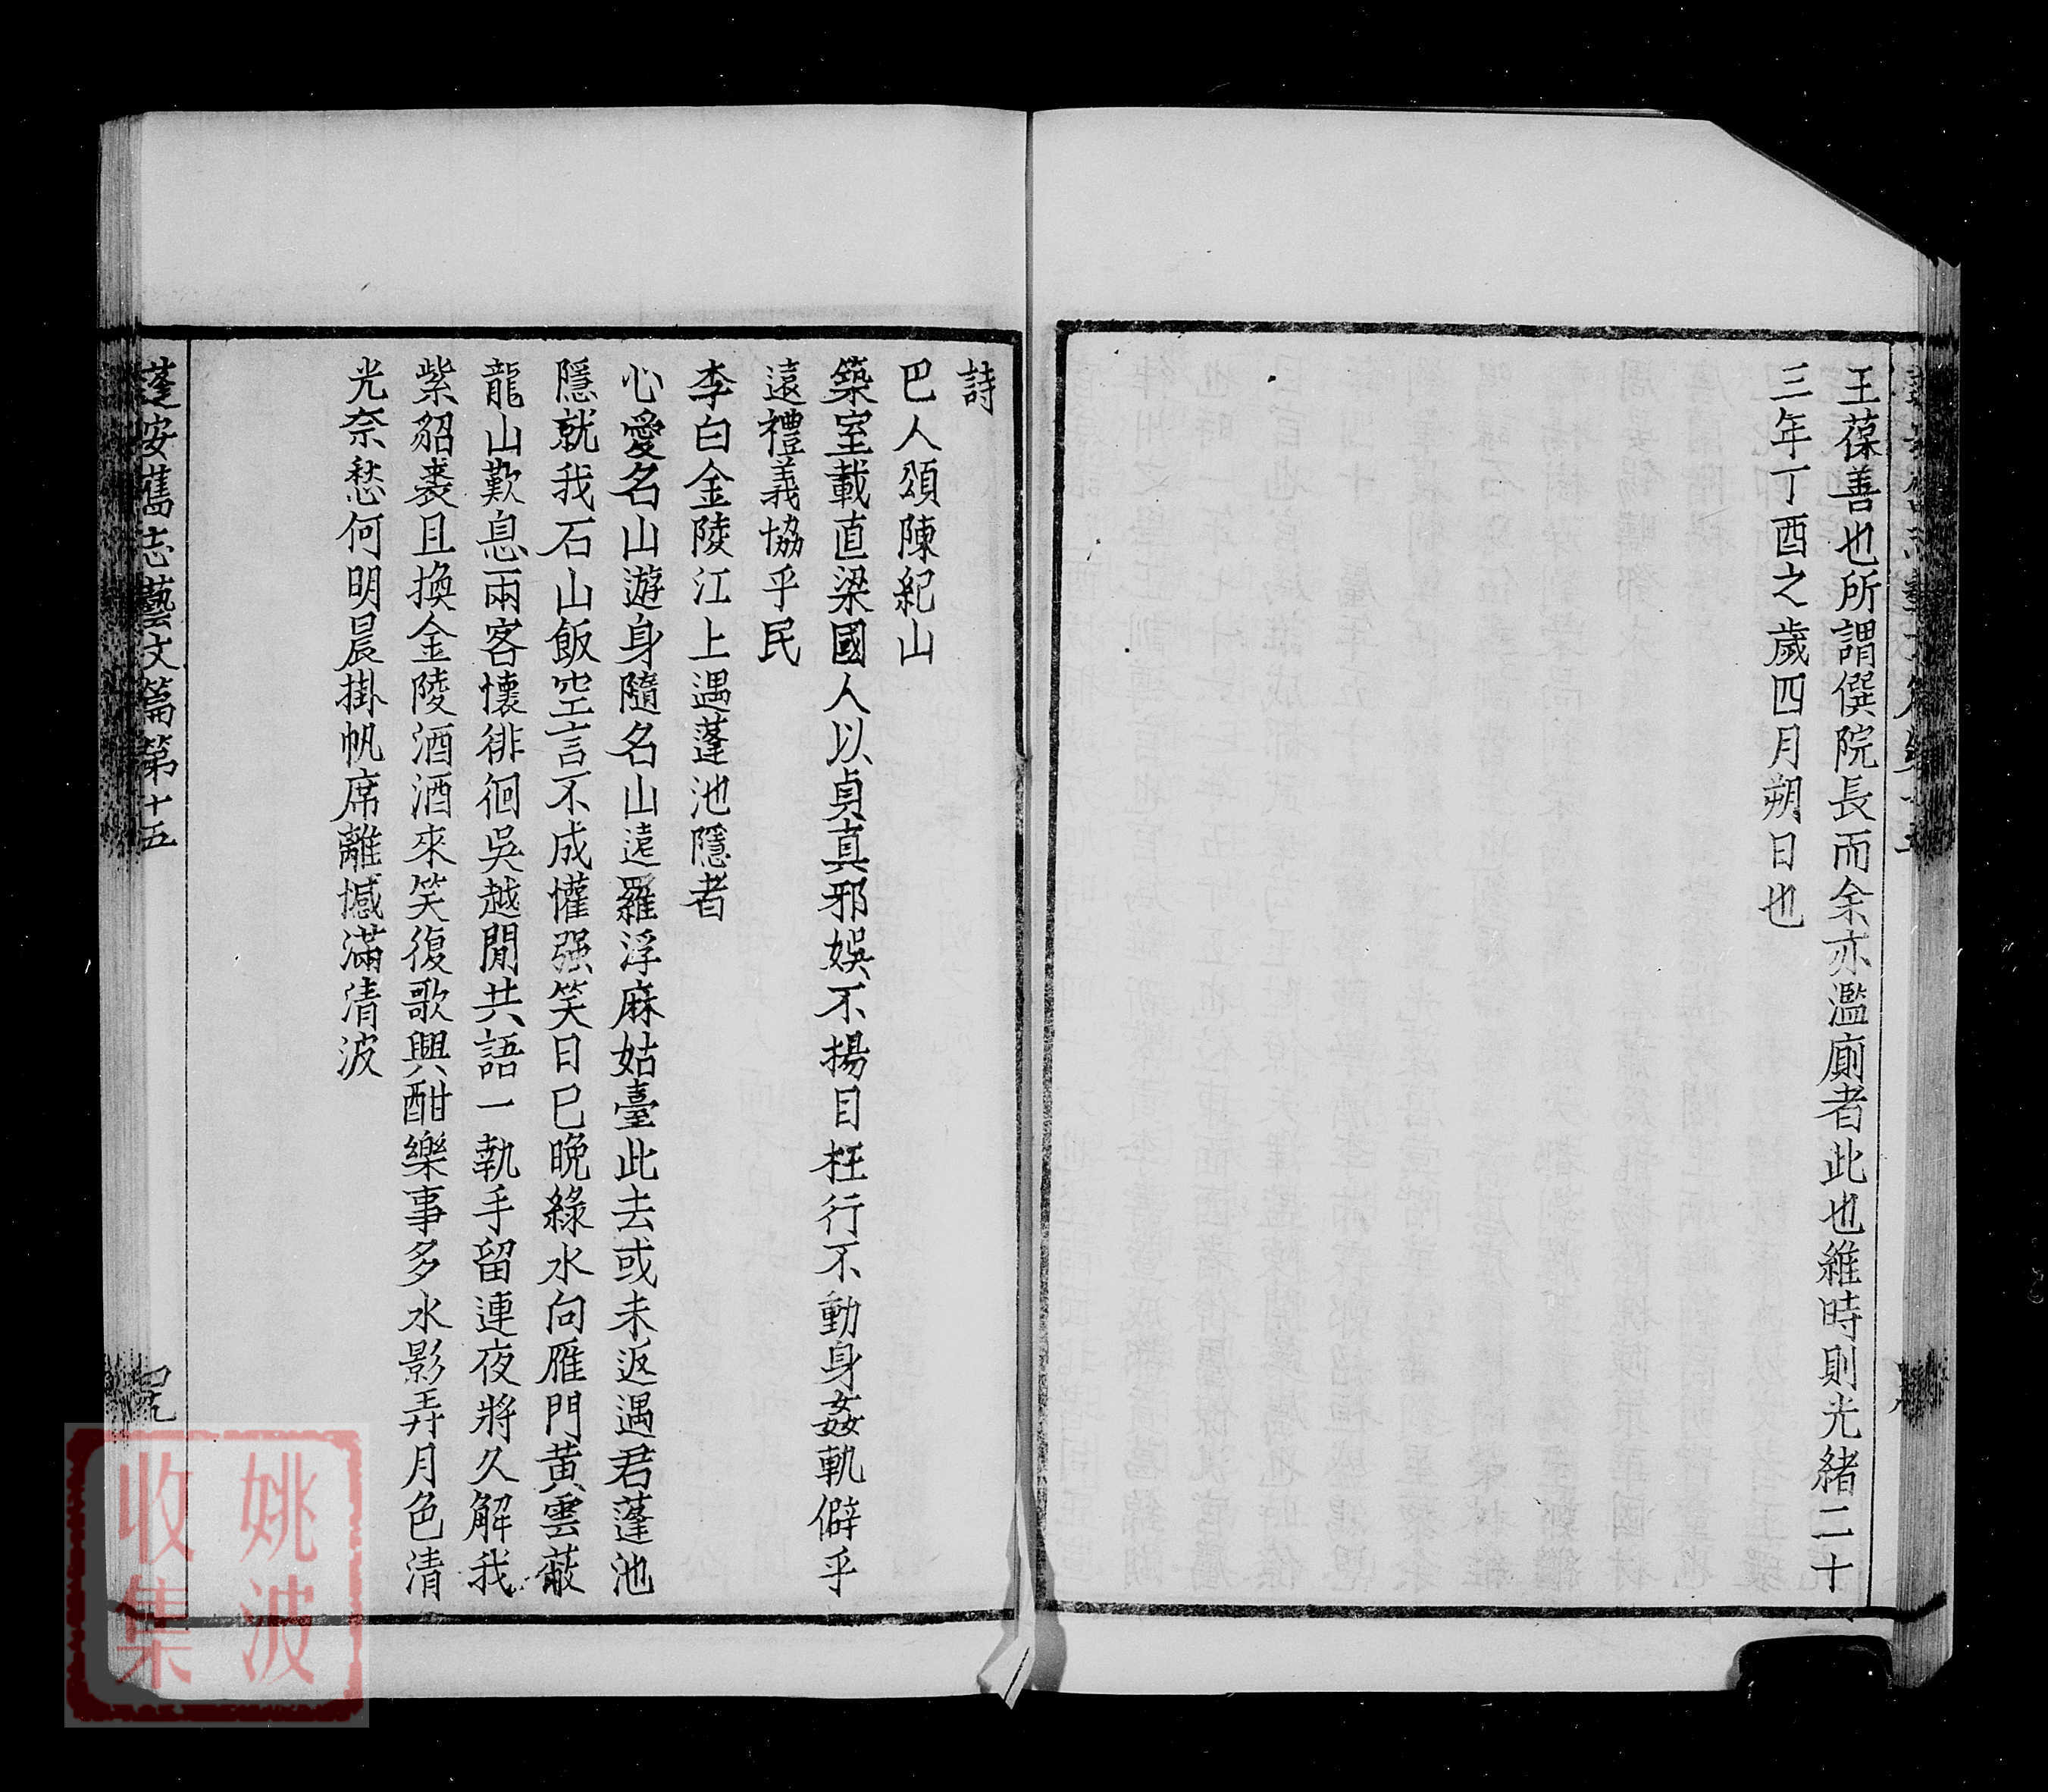 王葆善也所謂僎院長而余亦濫廁者此也維時則光緒二十
三年丁酉之歲四月朔日也
詩
巴人頌陳紀山
築室載直梁國人以貞真邪娛不揚目枉行不動身姦軌僻乎
遠禮義協乎民
李白金陵江上遇蓬池隱者
心愛名山遊身隨名山遠羅浮麻姑臺此去或未返遇君蓬池
隱就我石山飯空言不成懽强笑日已晚綠水向雁門黃雲蔽
龍山歎息兩客懷徘徊吳越間共語一執手留連夜將久解我
紫貂裘且換金陵酒酒來笑復歌興酣樂事多水影弄月色清
光奈愁何明晨掛帆席離憾滿清波
蓬安舊志藝文篇第十五
四九
姚波
收集